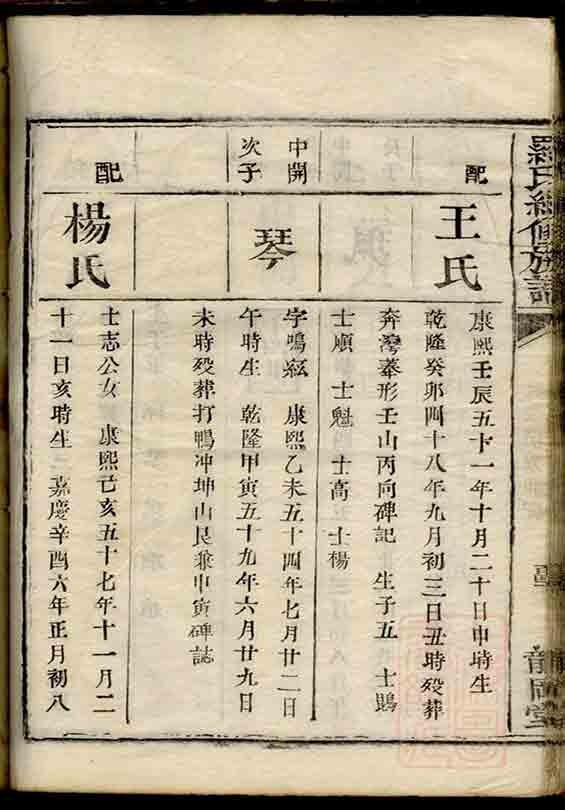 羅氏續修族譜
龍岡堂
配
王氏
康熙壬辰五十一年十月二十日申時生
乾隆癸卯四十八年九月初三日丑時歿葬
奔灣藔形壬山丙向碑記 生子五 士鵾
士順 士魁 士高 士楊
中開
次子
琴
字鳴絃 康熙乙未五十四年七月廿二日
午時生 乾隆甲寅五十九年六月廿九日
未時歿葬打鴨冲坤山艮兼申寅碑誌
配
楊氏
士志公女 康熙己亥五十七年十一月二
十一日亥時生 嘉慶辛酉六年正月初八